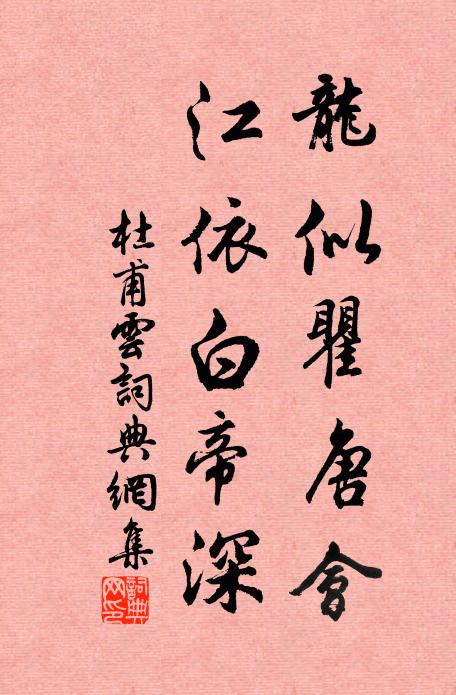 龍似瞿唐會
江依白帝深
杜甫雲詞典網集
詞典网印